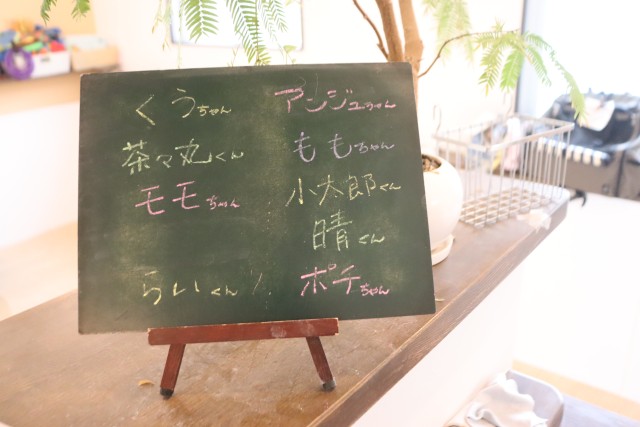 くうちゃん
茶々丸くん
モモちゃん
らいくん
アンジュちゃん
ももちゃん
小太郎くん
晴くん
ポチちゃん